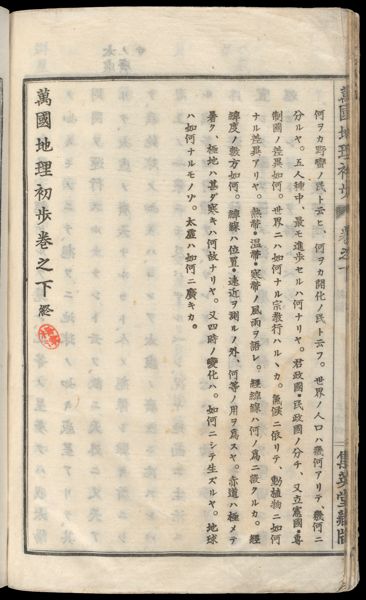 何ヲカ野蠻ノ民ト云ヒ、何ヲカ開化ノ民ト云フ。世界ノ人口ハ幾何アリテ、幾何ニ
分ルヤ。五人種中、最モ進歩セルハ何ナリヤ。君政國・民政國ノ分チ、又立憲國・專
制國ノ差異如何。世界ニハ如何ナル宗教行ハルヽカ。氣候ニ依リテ、動植物ニ如何
ナル差異アリヤ。熱帶・温帶・寒帶ノ風雨ヲ語レ。經緯線ハ何ノ爲ニ設クルカ。經
緯度ノ數方如何。緯線ハ位置・遠近ヲ測ルノ外、何等ノ用ヲ爲スヤ。赤道ハ極メテ
暑ク、極地ハ甚ダ寒キハ何故ナリヤ。又四時ノ變化ハ、如何ニシテ生ズルヤ。地球
ハ如何ナルモノゾ。太虚ハ如何ニ廣キカ。
萬國地理初歩卷之下 終